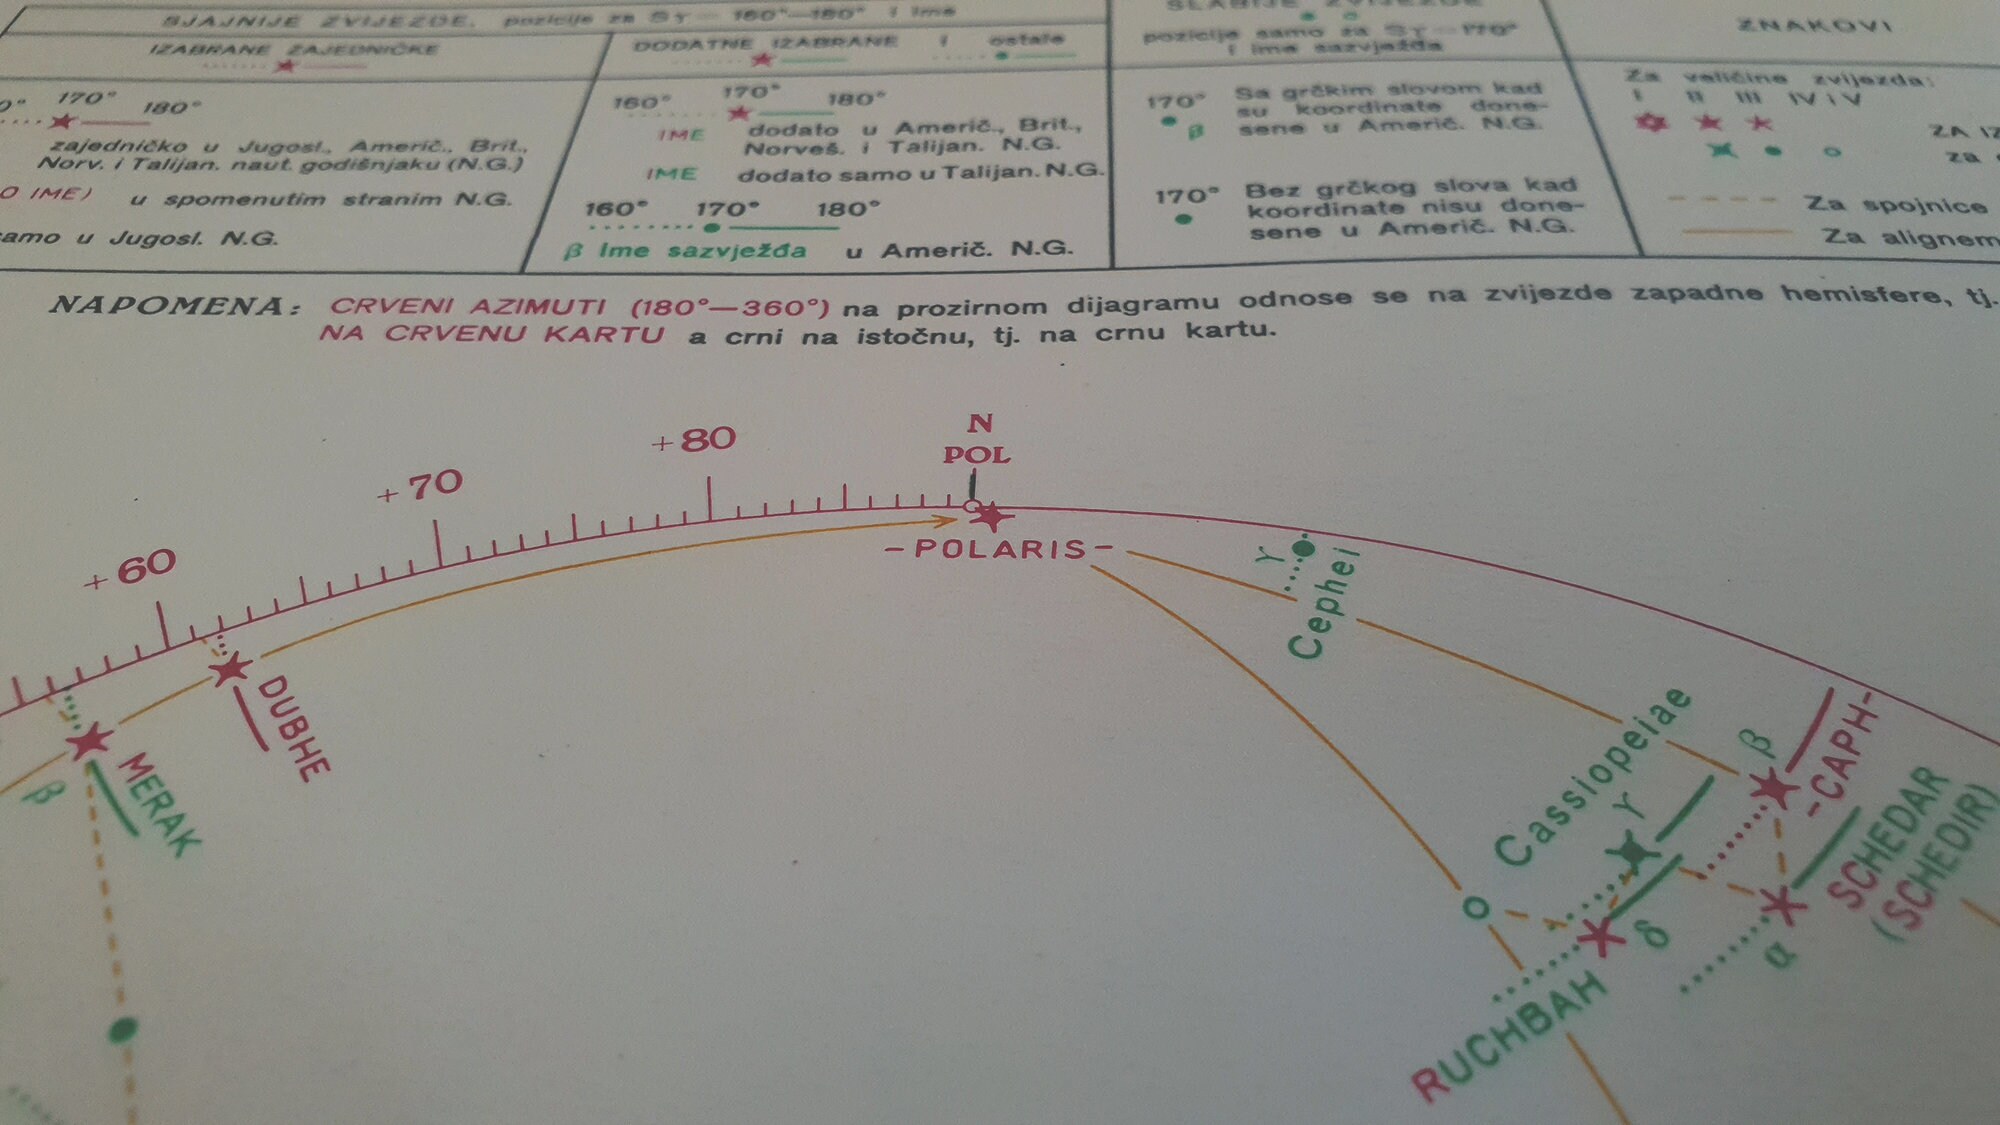 SJAJNIJE ZVIJEZDE, pozicije za Sγ — 160°—180° i ime
IZABRANE ZAJEDNIČKE
170° 180°
zajedničko u Jugosl., Američ., Brit.,
Norv. i Talijan. naut. godišnjaku (N.G.)
O IME) u spomenutim stranim N.G.
samo u Jugosl. N.G.
DODATNE IZABRANE i ostale
160° 170° 180°
IME dodato u Američ., Brit.,
Norveš. i Talijan. N.G.
IME dodato samo u Talijan. N.G.
160° 170° 180°
β Ime sazvježđa u Američ. N.G.
SLABIJE ZVIJEZDE
pozicije samo za Sγ — 170°
i ime sazvježđa
170° Sa grčkim slovom kad
β su koordinate done-
sene u Američ. N.G.
170° Bez grčkog slova kad
koordinate nisu done-
sene u Američ. N.G.
ZNAKOVI
Za veličine zvijezda:
I II III IV i V
ZA
za
Za spojnice
Za alignem
NAPOMENA: CRVENI AZIMUTI (180°—360°) na prozirnom dijagramu odnose se na zvijezde zapadne hemisfere, tj.
NA CRVENU KARTU a crni na istočnu, tj. na crnu kartu.
N
POL
+80
+70
+60
-POLARIS-
γ
Cephei
DUBHE
MERAK
β
Cassiopeiae
γ
β
-CAPH-
SCHEDAR
(SCHEDIR)
δ
α
RUCHBAH